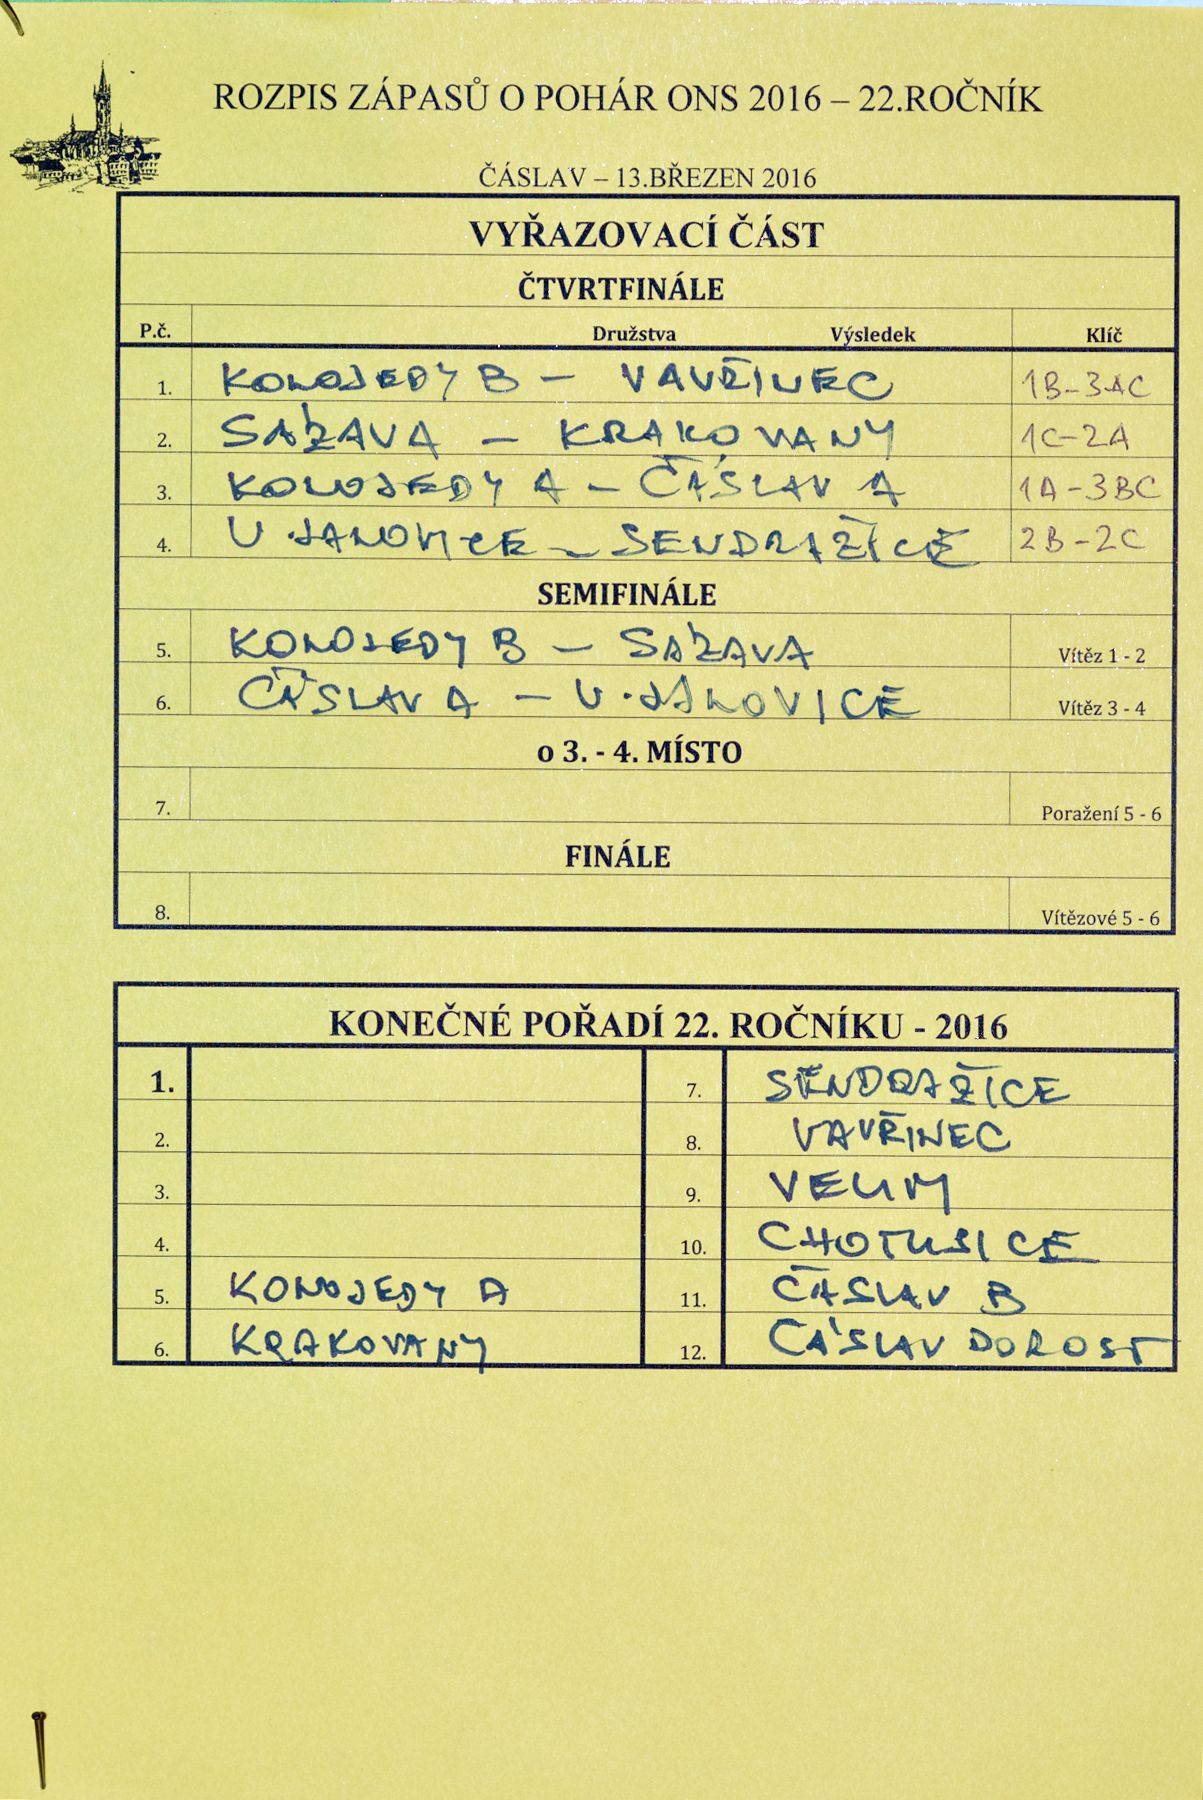 ROZPIS ZÁPASŮ O POHÁR ONS 2016 – 22.ROČNÍK
ČÁSLAV – 13.BŘEZEN 2016
VYŘAZOVACÍ ČÁST
ČTVRTFINÁLE
P.č. Družstva Výsledek Klíč
1. KONOJEDY B – VAVŘINEC 1B-3AC
2. SÁZAVA – KRAKOVANY 1C-2A
3. KONOJEDY A – ČÁSLAV A 1A-3BC
4. U.JANOVICE – SENDRAŽICE 2B-2C
SEMIFINÁLE
5. KONOJEDY B – SÁZAVA Vítěz 1 - 2
6. ČÁSLAV A – U.JANOVICE Vítěz 3 - 4
o 3. - 4. MÍSTO
7. Poražení 5 - 6
FINÁLE
8. Vítězové 5 - 6
KONEČNÉ POŘADÍ 22. ROČNÍKU - 2016
1. 7. SENDRAŽICE
2. 8. VAVŘINEC
3. 9. VELIM
4. 10. CHOTUSICE
5. KONOJEDY A 11. ČÁSLAV B
6. KRAKOVANY 12. ČÁSLAV DOROST